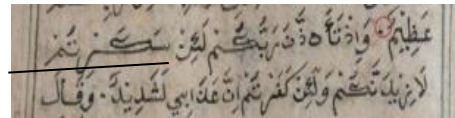 عَظِيمٌ وَإِذْ تَأَذَّنَ رَبُّكُمْ لَئِنْ شَكَرْتُمْ
لَأَزِيدَنَّكُمْ وَلَئِنْ كَفَرْتُمْ إِنَّ عَذَابِي لَشَدِيدٌ وَقَالَ